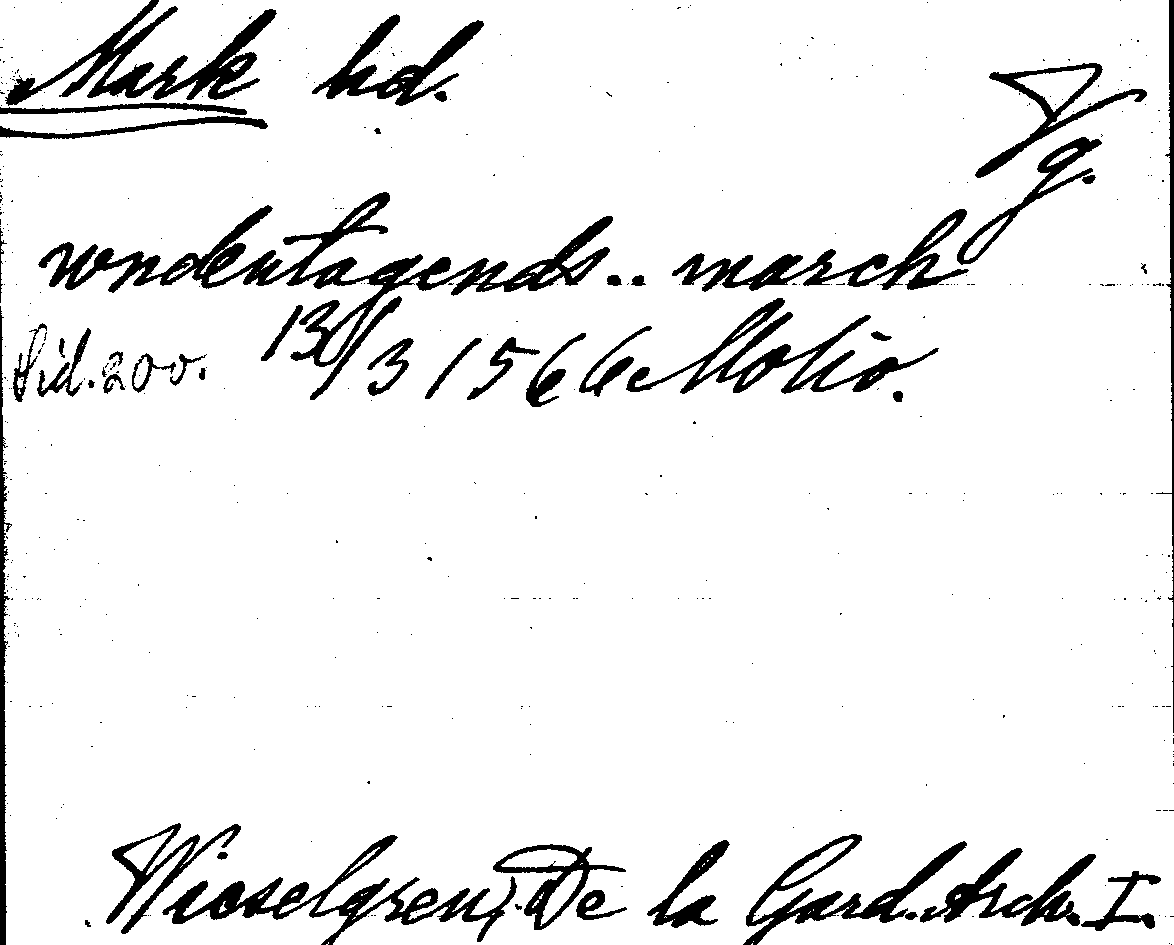 Mark hd.
Vg.
wndentagends .. march
Sid. 200. 13/3 1566 Motio.
Wieselgren, De la Gard. Arch. I.